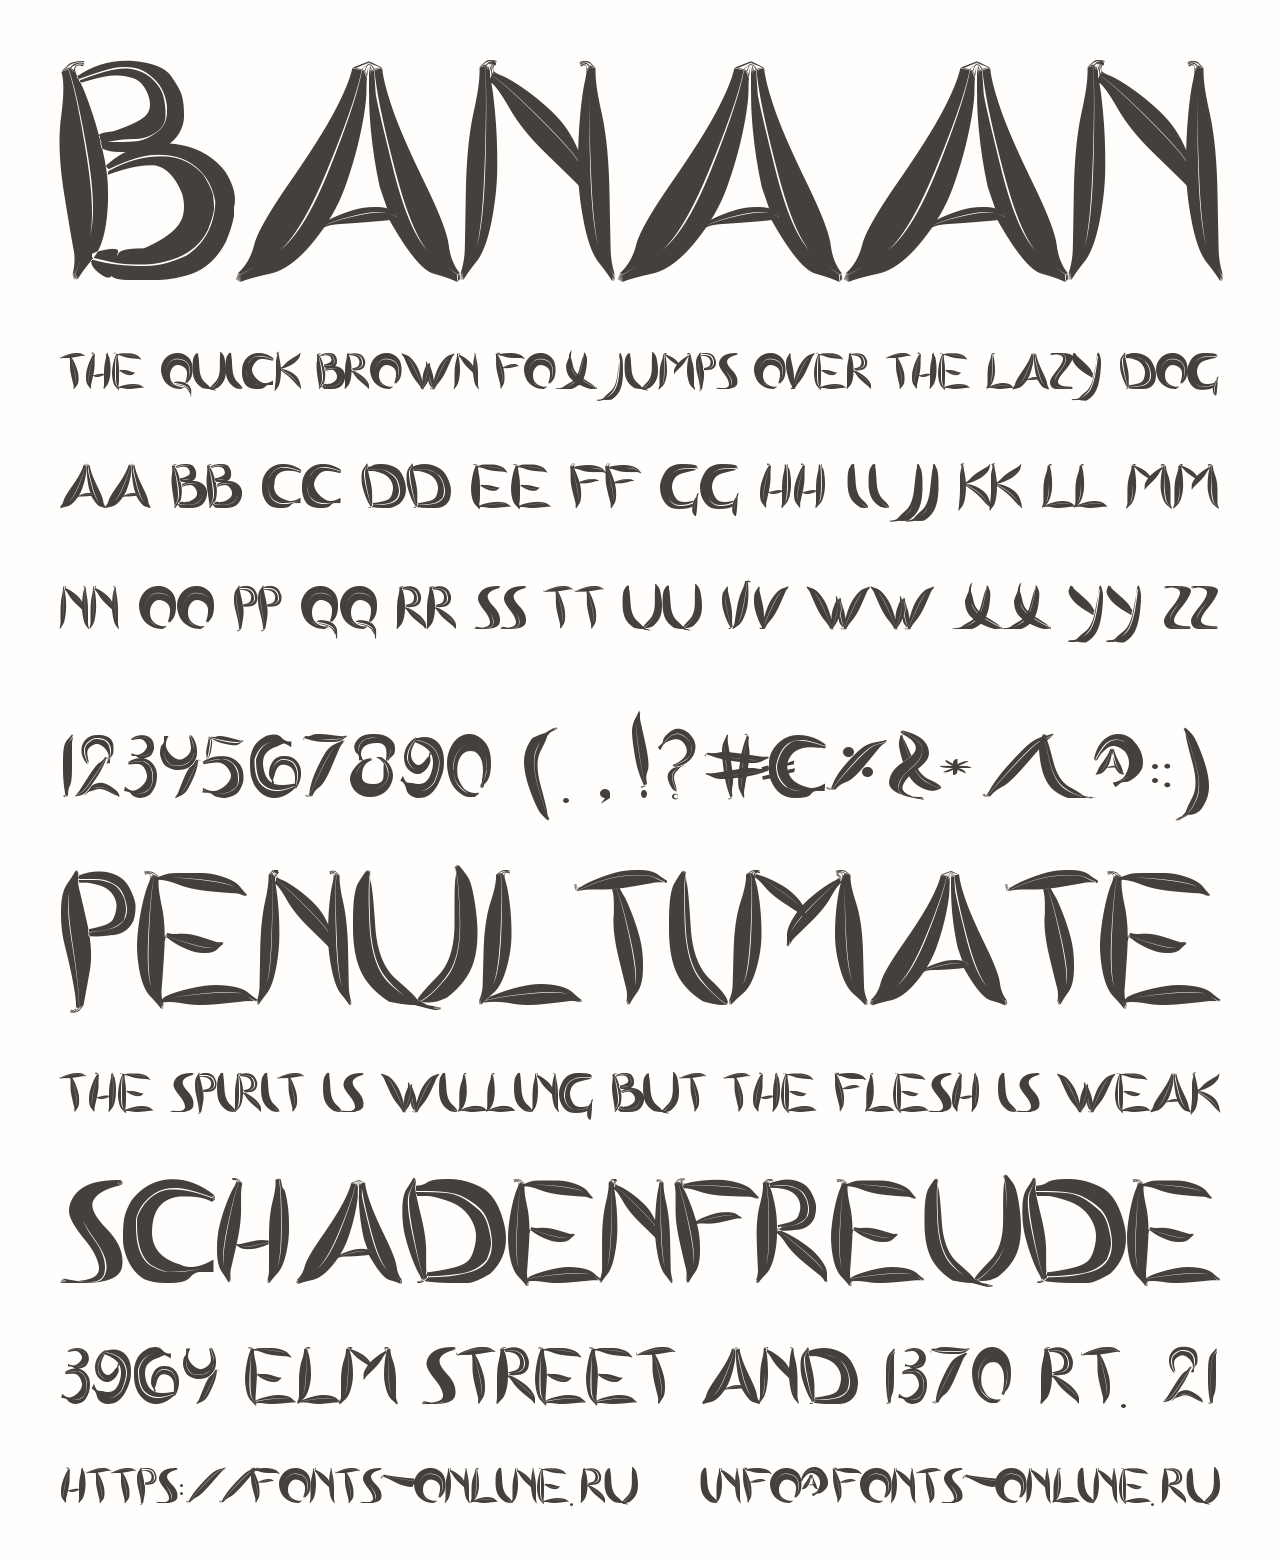 BANAAN
THE QUICK BROWN FOX JUMPS OVER THE LAZY DOG
AA BB CC DD EE FF GG HH II JJ KK LL MM
NN OO PP QQ RR SS TT UU VV WW XX YY ZZ
1234567890 (.,!?#€%&*/\@:;)
PENULTIMATE
THE SPIRIT IS WILLING BUT THE FLESH IS WEAK
SCHADENFREUDE
3964 ELM STREET AND 1370 RT. 21
HTTPS://FONTS-ONLINE.RU INFO@FONTS-ONLINE.RU